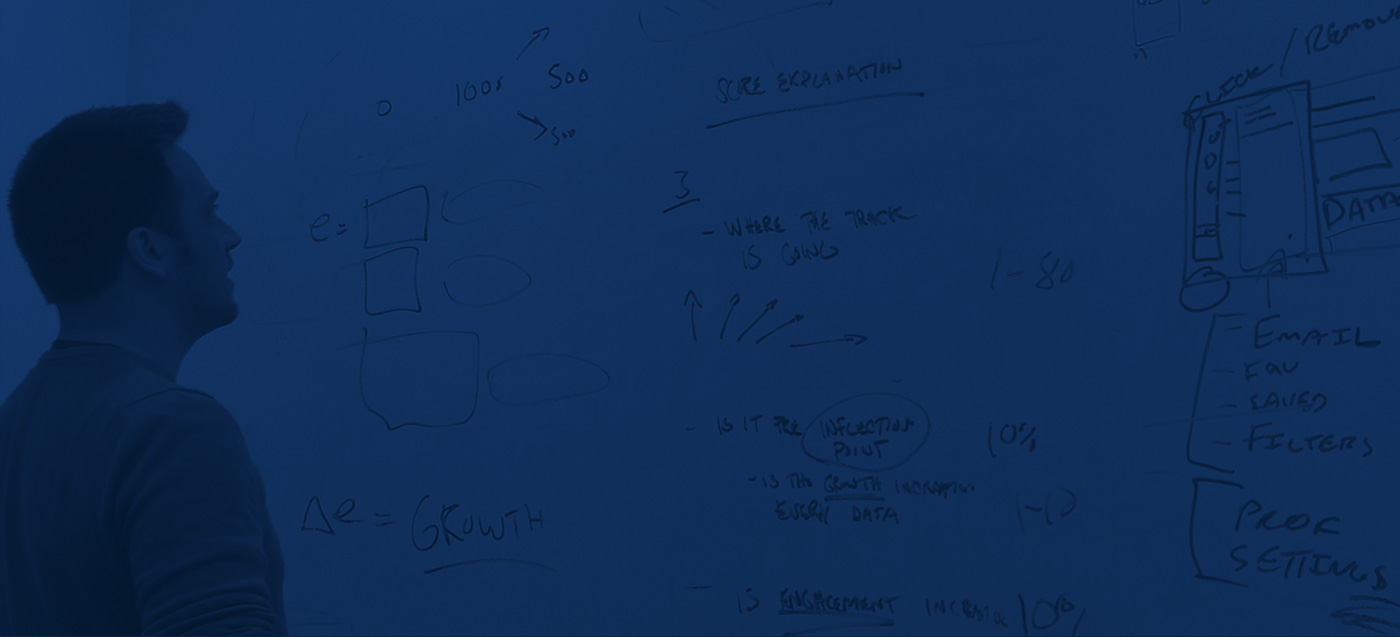 0 100s 500
500
e=
Δe = GROWTH
SCORE EXPLANATION
3
- WHERE THE TRACK
IS GOING
1-80
- IS IT THE INFLECTION
POINT
10%
- IS THE GROWTH INCREASING
EVERY DATA
1-10
- IS ENGAGEMENT INCREASING 10%
CLICK / REMOVE
DATA
- EMAIL
- FAV
- SAVED
- FILTERS
SETTINGS